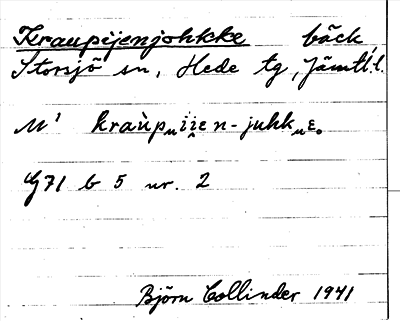 Kraupijenjohkke bäck
Storsjö sn, Hede tg, Jämtl.l.
M¹ kraùp᎐iịen-juhk᎐ε.
G71 b 5 nr. 2
Björn Collinder 1941